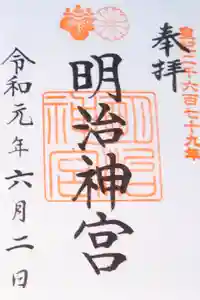 奉拝
皇紀二千六百七十九年
明治神宮
令和元年六月二日